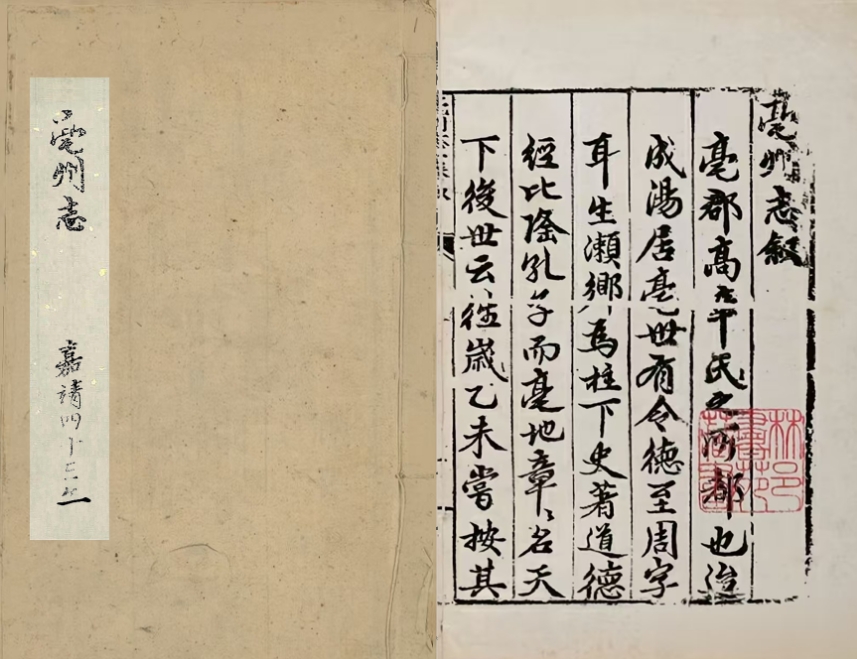 亳州志
嘉靖四十三年
亳州志叙
亳郡高辛氏之所都也迨
成湯居亳世有令德至周李
耳生瀨鄉為柱下史著道德
經比隆孔子而亳地章〻名天
下後世云往歲乙未嘗按其